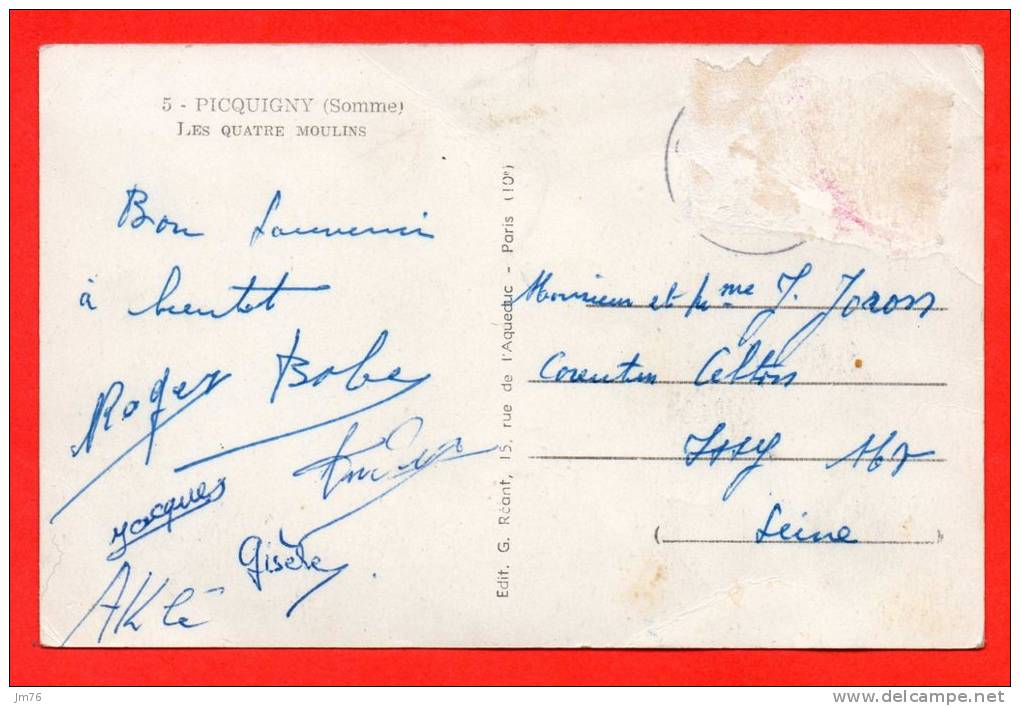 5 - PICQUIGNY (Somme)
LES QUATRE MOULINS
Bon Souvenir
à bientot
Roger Bobe
Jacques
Gisèle
AKlé
Edit. G. Réant, 15, rue de l'Aqueduc - Paris (10e)
Monsieur et Mme J. Joron
Corentin Celton
Issy Mx
Seine
jm76
©delcampe.net